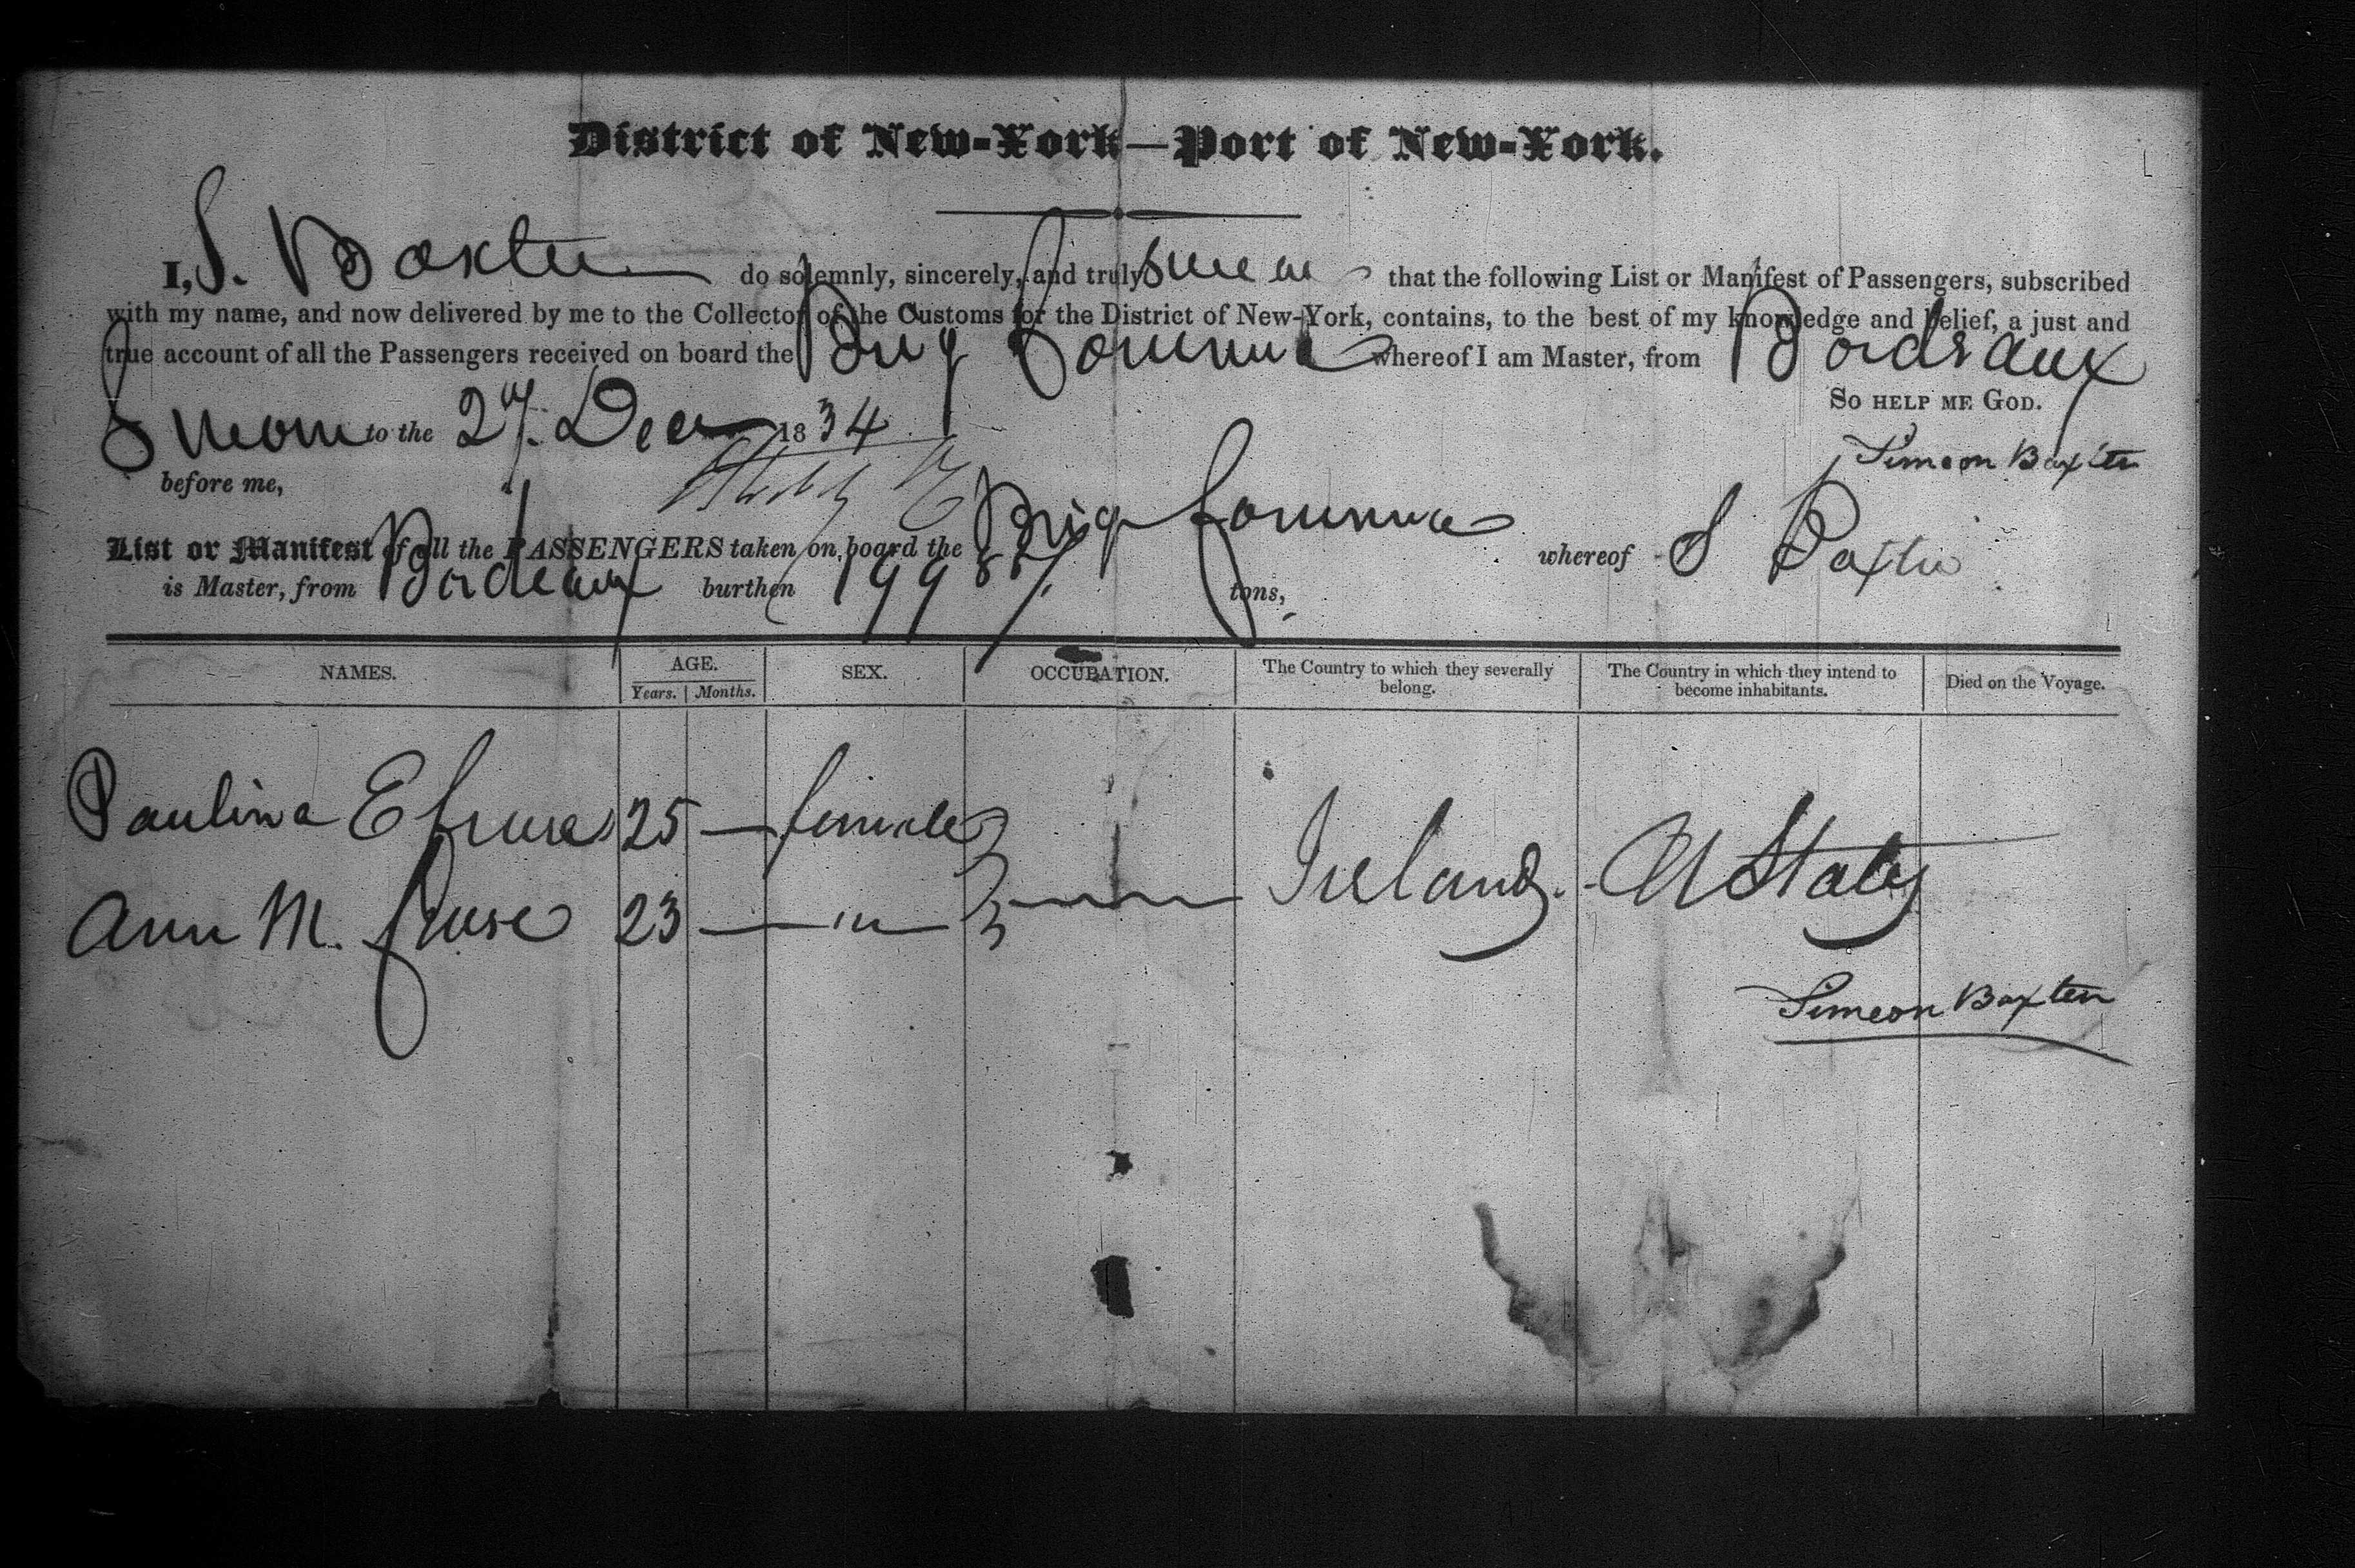 District of New-York—Port of New-York.
I, S. Baxter do solemnly, sincerely, and truly swear that the following List or Manifest of Passengers, subscribed
with my name, and now delivered by me to the Collector of the Customs for the District of New-York, contains, to the best of my knowledge and belief, a just and
true account of all the Passengers received on board the Brig whereof I am Master, from Bordeaux
So help me God.
Sworn to the Decr 1834
Simeon Baxter
before me,
List or Manifest of all the PASSENGERS taken on board the Brig whereof S Baxter
is Master, from Bordeaux burthen 199 tons,
NAMES. AGE. SEX. OCCUPATION. The Country to which they severally belong. The Country in which they intend to become inhabitants. Died on the Voyage.
Years. Months.
Paulina E 25 — female
Ann M. 23 — " — Ireland. U States
Simeon Baxter